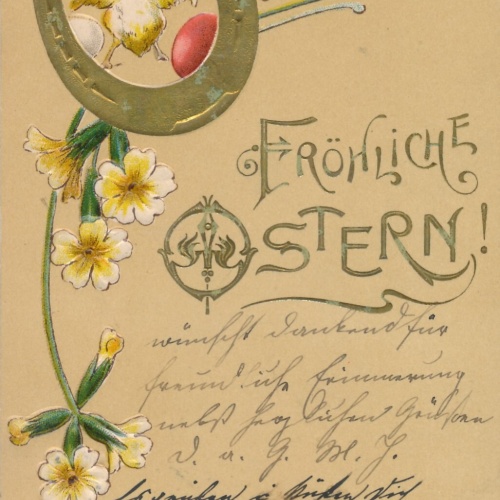 FRÖHLICHE
OSTERN!
wünscht dankend für
freundliche Erinnerung
nebst herzlichen Grüßen
D. a. G. M. J.